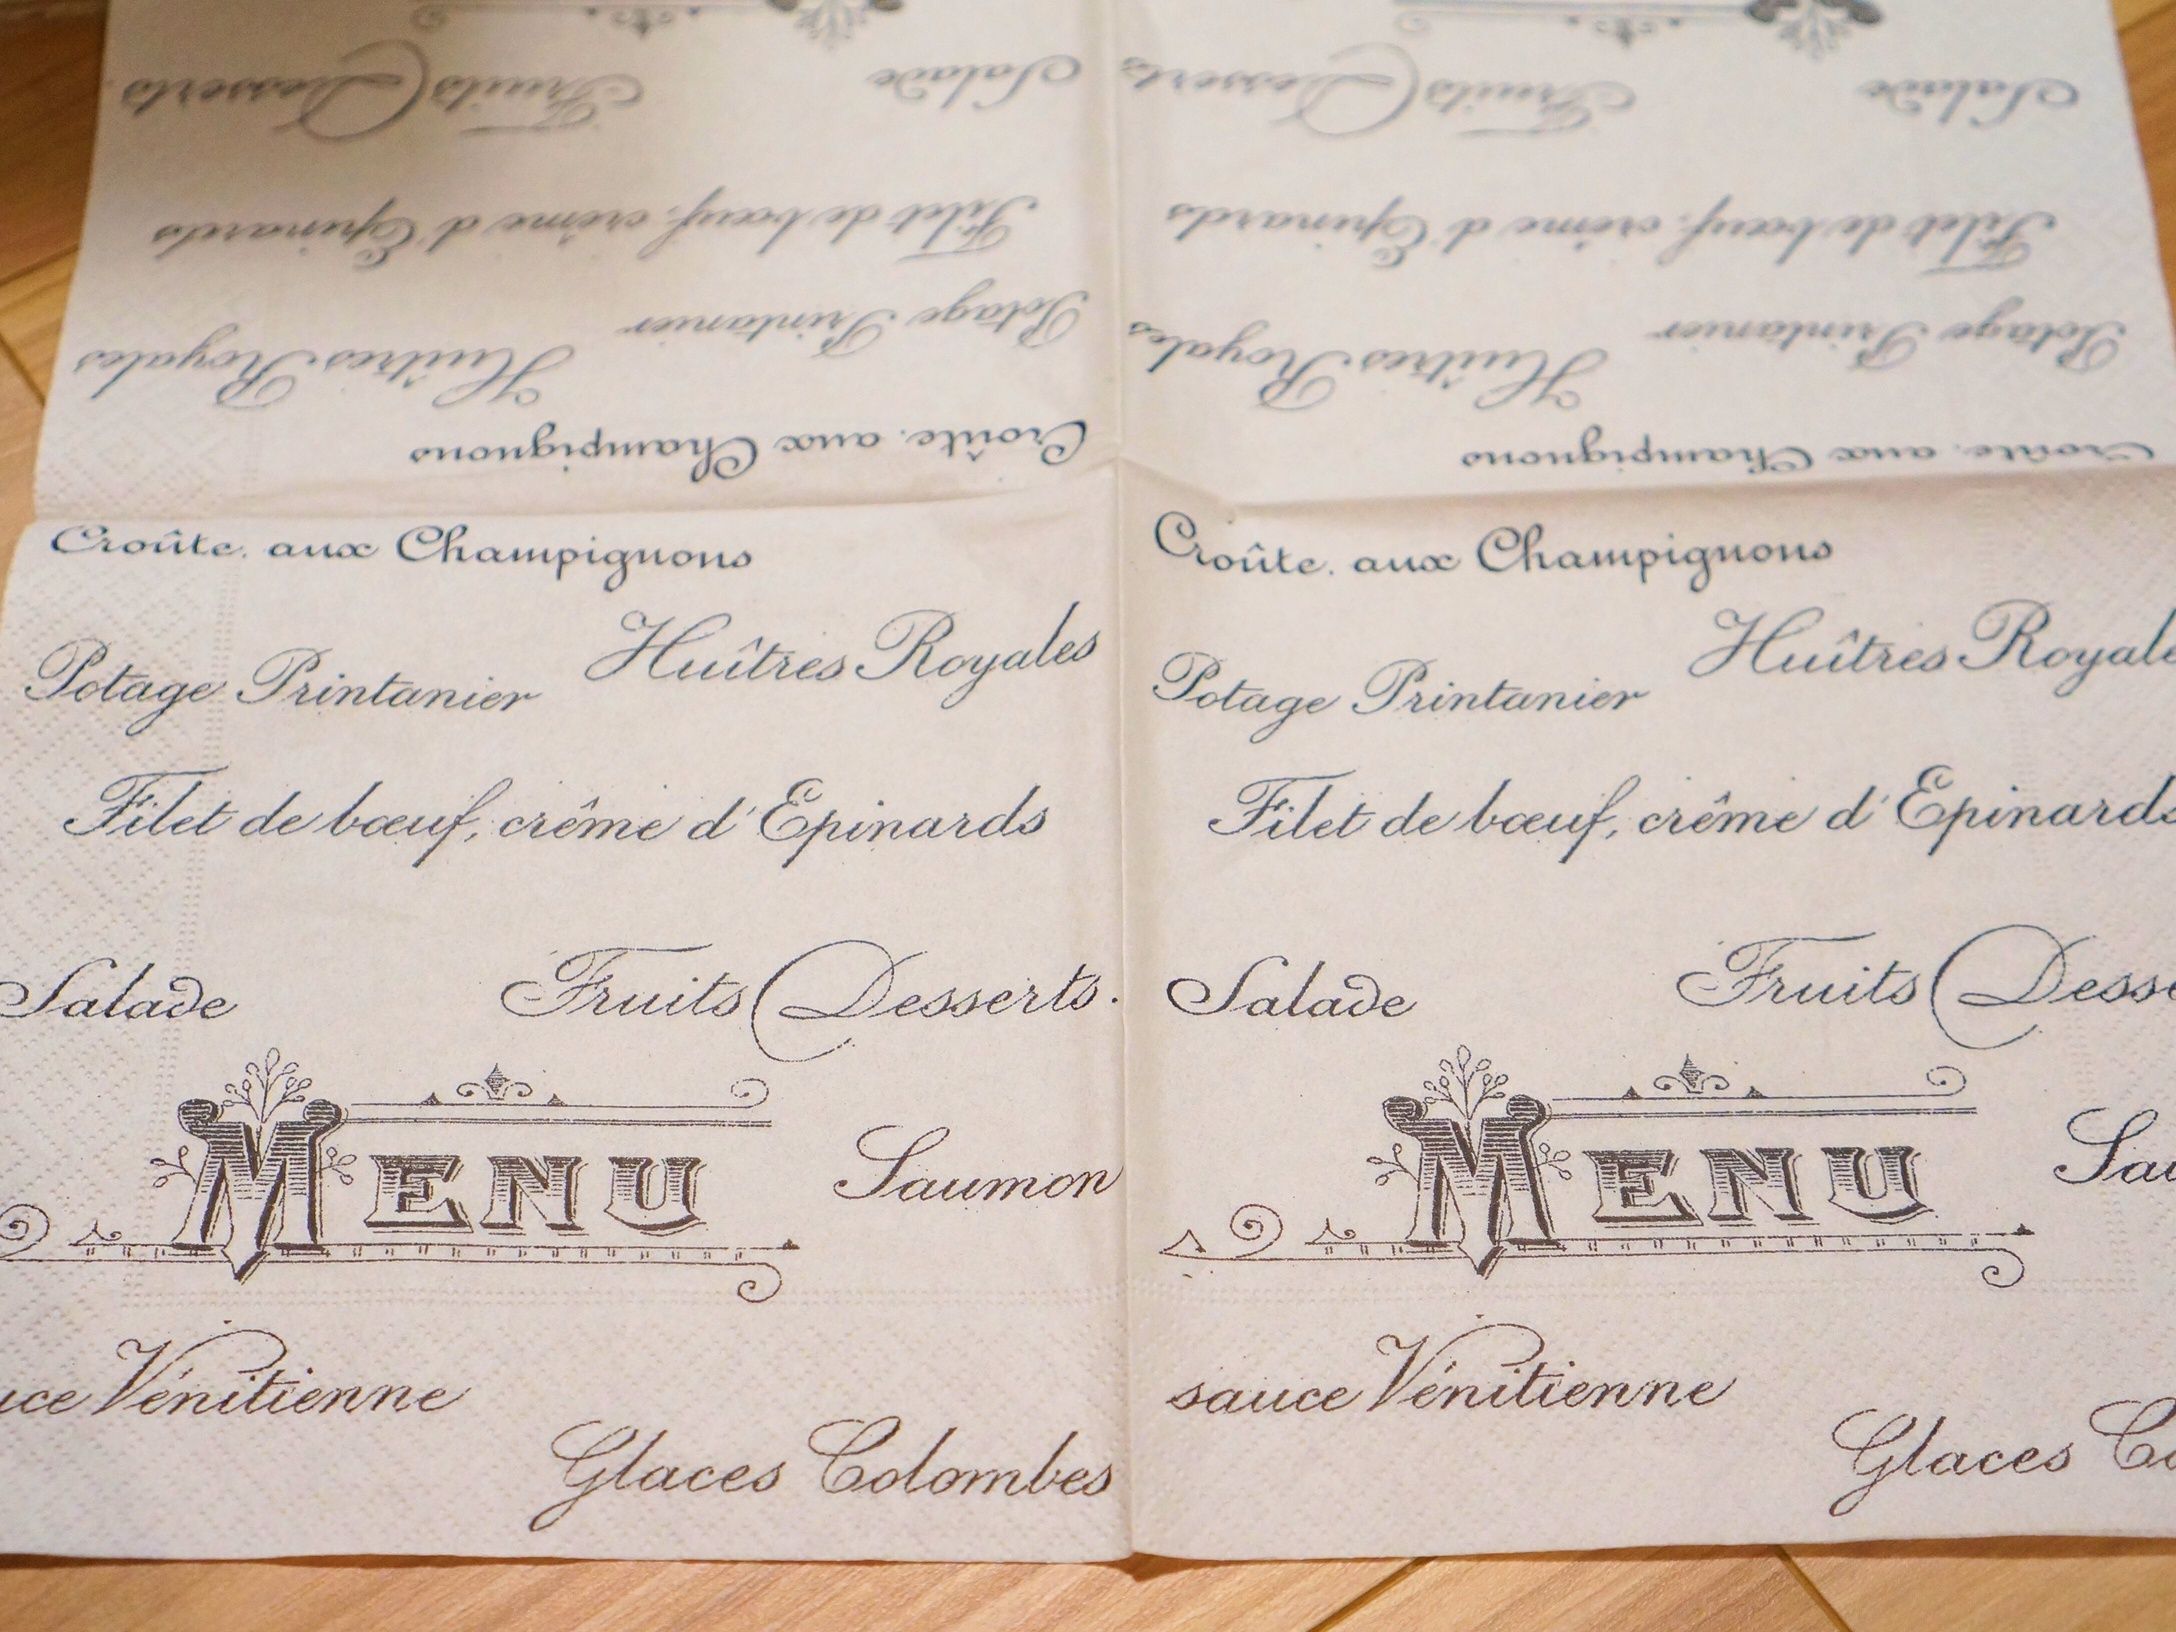 Salade Fruits Desserts.
Filet de bœuf, crême d'Epinards
Potage Printanier Huîtres Royales
Croûte. aux Champignons
Salade Fruits Desserts
Filet de bœuf, crême d'Epinards
Potage Printanier Huîtres Royales
Croûte. aux Champignons
Croûte. aux Champignons
Potage Printanier Huîtres Royales
Filet de bœuf, crême d'Epinards
Salade Fruits Desserts.
MENU Saumon
Vénitienne
Glaces Colombes
Croûte. aux Champignons
Potage Printanier Huîtres Royale
Filet de bœuf, crême d'Epinards
Salade Fruits Desse
MENU Sau
sauce Vénitienne
Glaces Co